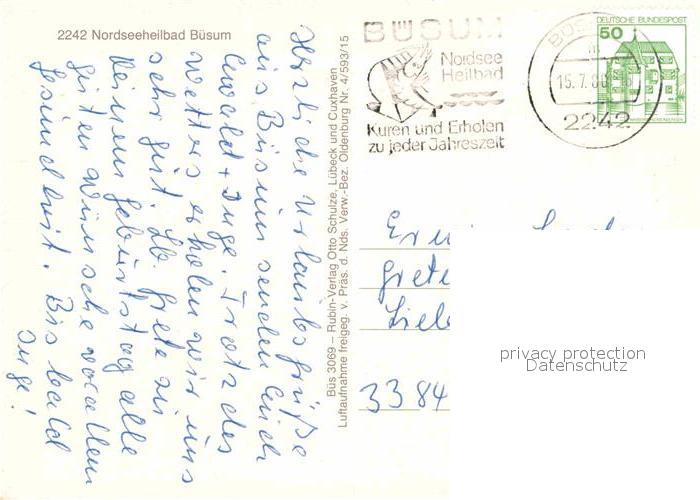 2242 Nordseeheilbad Büsum
Herzliche Urlaubsgrüße
aus Büsum senden Euch
Ewald + Inge. Trotz des
Wetters erholen wir uns
sehr gut. Lb. Grete zu
Deinem Geburtstag alle
guten Wünsche vor allem
Gesundheit. Bis bald
Inge!
Büs 3069 – Rubin-Verlag Otto Schulze, Lübeck und Cuxhaven
Luftaufnahme freigeg. v. Präs. d. Nds. Verw.-Bez. Oldenburg Nr. 4/593/15
BÜSUM
Nordsee
Heilbad
Kuren und Erholen
zu jeder Jahreszeit
15.7.80
2242
DEUTSCHE BUNDESPOST
50
Grete
3384
privacy protection
Datenschutz